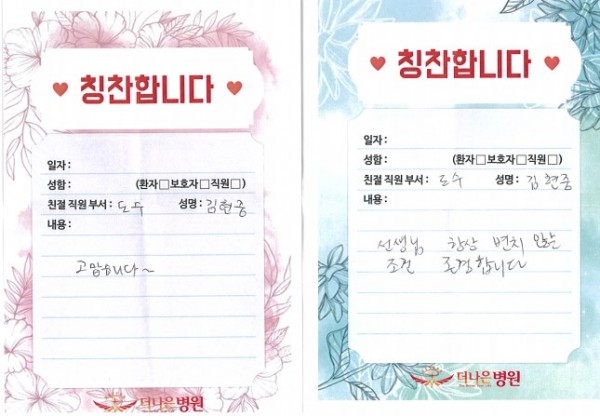 칭찬합니다
일자 :
성함 : (환자□보호자□직원□)
친절 직원 부서 : 도수 성명 : 김현중
내용 :
고맙습니다~
더나은병원
칭찬합니다
일자 :
성함 : (환자□보호자□직원□)
친절 직원 부서 : 도수 성명 : 김현중
내용 :
선생님 항상 변치 않는
조건 존경합니다
더나은병원